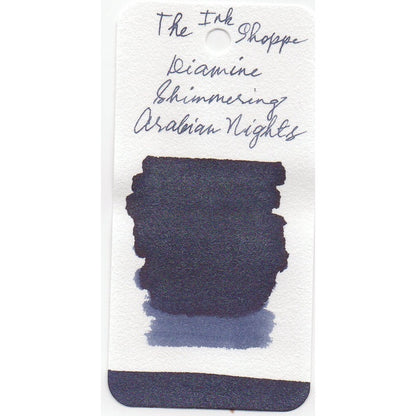 The Ink Shoppe
Diamine
Shimmering
Arabian Nights